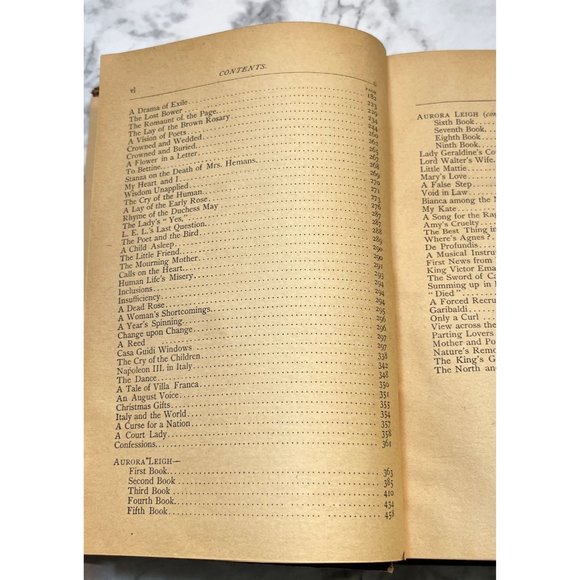 vi
CONTENTS.
PAGE
A Drama of Exile 182
The Lost Bower 223
The Romaunt of the Page
The Lay of the Brown Rosary 234
A Vision of Poets 244
Crowned and Wedded 262
Crowned and Buried 263
A Flower in a Letter 265
To Bettine 267
Stanza on the Death of Mrs. Hemans
My Heart and I
Wisdom Unapplied 270
The Cry of the Human 271
A Lay of the Early Rose 273
Rhyme of the Duchess May 276
The Lady's "Yes," 287
L. E. L.'s Last Question 287
The Poet and the Bird 288
A Child Asleep 289
The Little Friend 290
The Mourning Mother 291
Calls on the Heart
Human Life's Misery 293
Inclusions 294
Insufficiency 294
A Dead Rose 294
A Woman's Shortcomings 294
A Year's Spinning 295
Change upon Change 296
A Reed 297
Casa Guidi Windows 297
The Cry of the Children 338
Napoleon III. in Italy 342
The Dance 348
A Tale of Villa Franca 350
An August Voice 351
Christmas Gifts 355
Italy and the World 354
A Curse for a Nation 357
A Court Lady 358
Confessions 361
AURORA LEIGH—
First Book 363
Second Book 385
Third Book 410
Fourth Book 434
Fifth Book 458
AURORA LEIGH (con
Sixth Book
Seventh Book
Eighth Book
Ninth Book
Lady Geraldine's Cou
Lord Walter's Wife
Little Mattie
Mary's Love
A False Step
Void in Law
Bianca among the N
My Kate
A Song for the Rag
Amy's Cruelty
The Best Thing in
Where's Agnes?
De Profundis
A Musical Instru
First News from
King Victor Ema
The Sword of Ca
Summing up in I
"Died"
A Forced Recrui
Garibaldi
Only a Curl
View across the
Parting Lovers
Mother and Po
Nature's Remo
The King's G
The North and